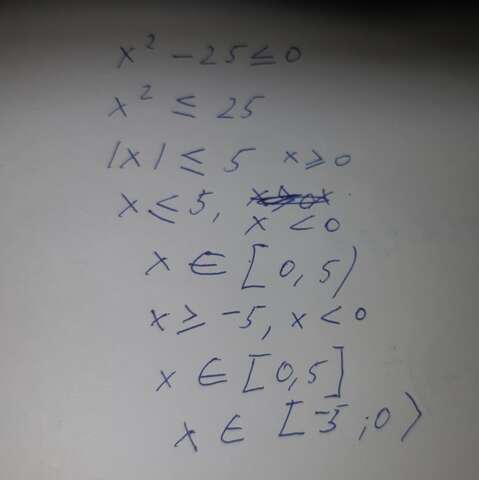 x² - 25 ≤ 0
x² ≤ 25
|x| ≤ 5 x ≥ 0
x ≤ 5,
x < 0
x ∈ [0, 5)
x ≥ -5, x < 0
x ∈ [0,5]
x ∈ [-5;0)